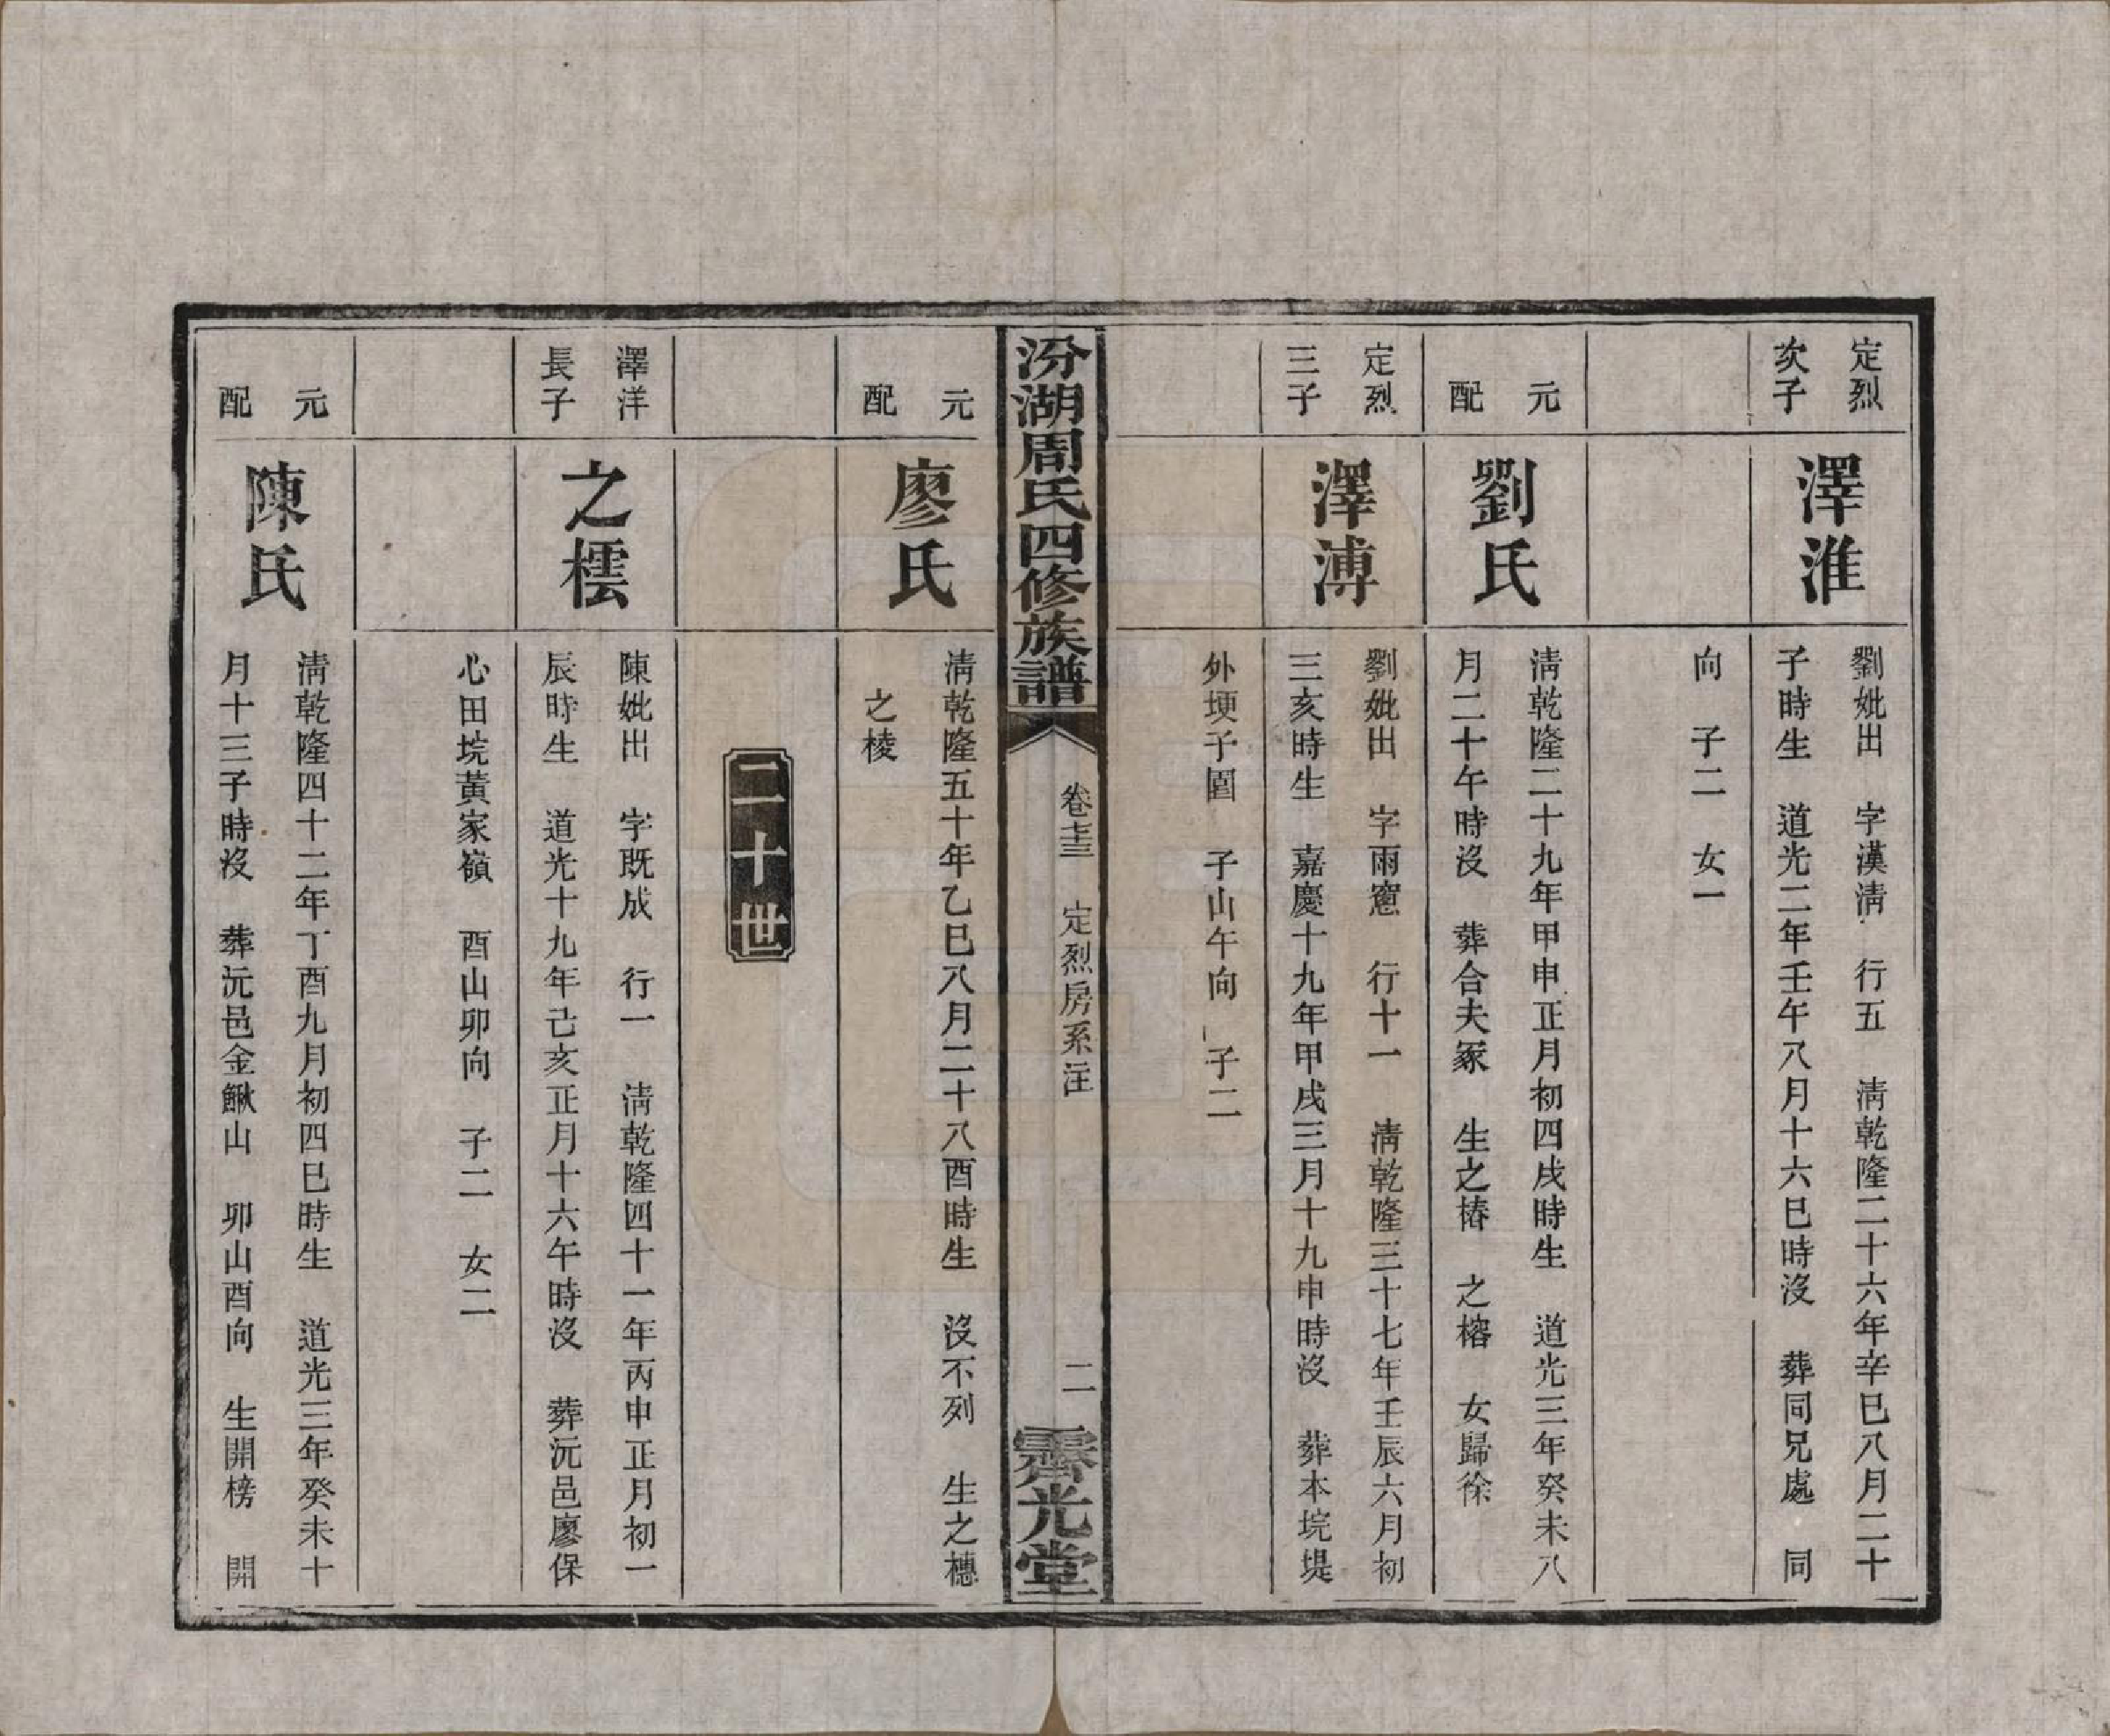 定烈
次子
澤淮
劉妣出　字漢淸　行五　淸乾隆二十六年辛巳八月二十
子時生　道光二年壬午八月十六巳時沒　葬同兄處　同
向　子二　女一
元
配
劉氏
淸乾隆二十九年甲申正月初四戌時生　道光三年癸未八
月二十午時沒　葬合夫冢　生之椿　之榕　女歸徐
定烈
三子
澤溥
劉妣出　字雨窻　行十一　淸乾隆三十七年壬辰六月初
三亥時生　嘉慶十九年甲戌三月十九申時沒　葬本垸堤
外埂子圍　子山午向　子二
汾湖周氏四修族譜
卷十三
定烈房系注
二
霽光堂
元
配
廖氏
淸乾隆五十年乙巳八月二十八酉時生　沒不列　生之橞
之棱
二十世
澤洋
長子
之橒
陳妣出　字既成　行一　淸乾隆四十一年丙申正月初一
辰時生　道光十九年己亥正月十六午時沒　葬沅邑廖保
心田垸黃家嶺　酉山卯向　子二　女二
元
配
陳氏
淸乾隆四十二年丁酉九月初四巳時生　道光三年癸未十
月十三子時沒　葬沅邑金鰍山　卯山酉向　生開榜　開